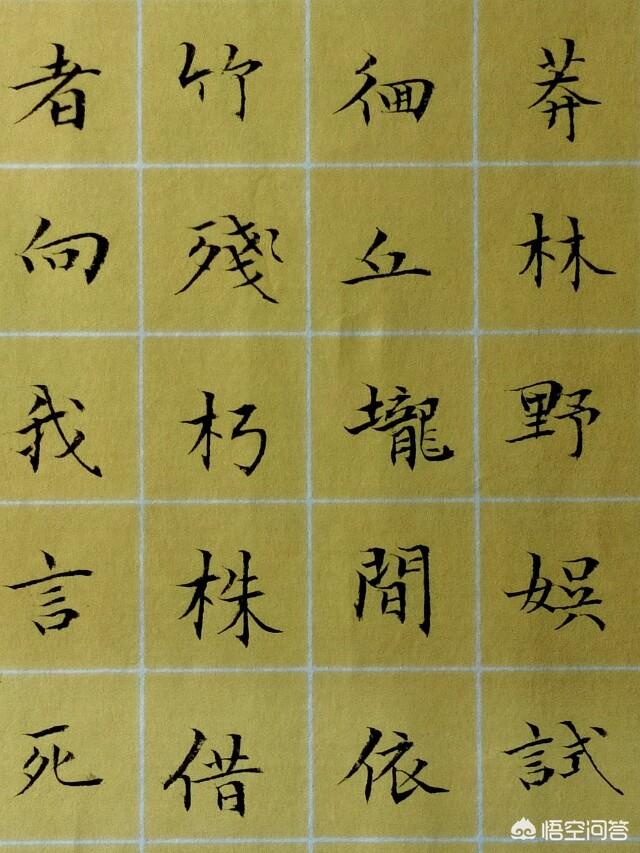 莽林野娛試
徊丘壠間依
竹殘朽株借
者向我言死
悟空问答